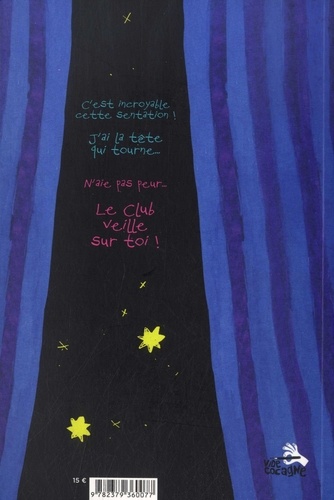 C'est incroyable
cette sentation !
J'ai la tête
qui tourne...
N'aie pas peur...
Le Club
veille
sur toi !
15 €
9 782379 360077
vide
cocagne